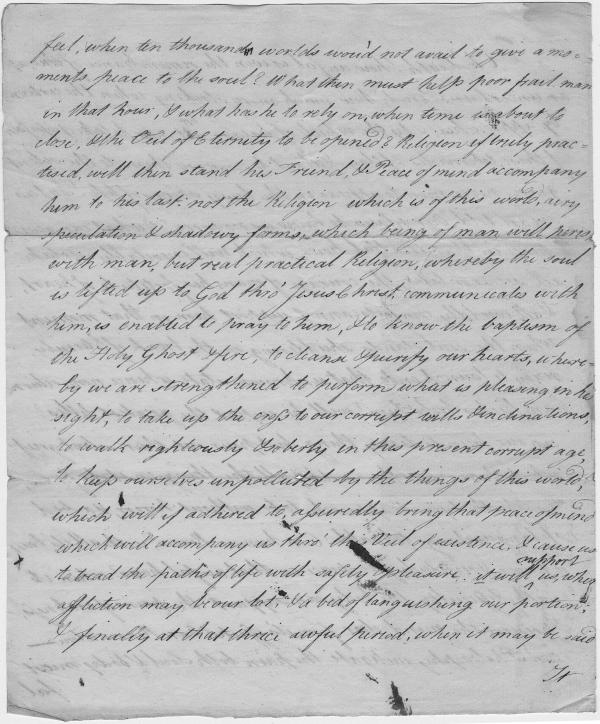 feel, when ten thousands worlds wou'd not avail to give a mo-
ments peace to the soul? What then must help poor frail man
in that hour, & what has he to rely on, when time is about to
close, & the Veil of Eternity to be opened? Religion if truly prac-
tised, will then stand his Friend, & Peace of mind accompany
him to his last: not the Religion which is of this world, airy
speculation & shadowy forms, which being of man will perish
with man, but real practical Religion, whereby the soul
is lifted up to God thro' Jesus Christ, communicates with
him, is enabled to pray to him, & to know the baptism of
the Holy Ghost & fire, to cleanse & purify our hearts, where-
by we are strengthened to perform what is pleasing in his
sight, to take up the cross to our corrupt wills & inclinations,
to walk righteously & soberly in this present corrupt age,
to keep ourselves unpolluted by the things of this world;
which will if adhered to, assuredly bring that peace of mind
which will accompany us thro' the Veil of existence, & cause us
to tread the paths of life with safety & pleasure: it will support us, when
affliction may be our lot, & a bed of languishing our portion;
& finally at that thrice awful period, when it may be said